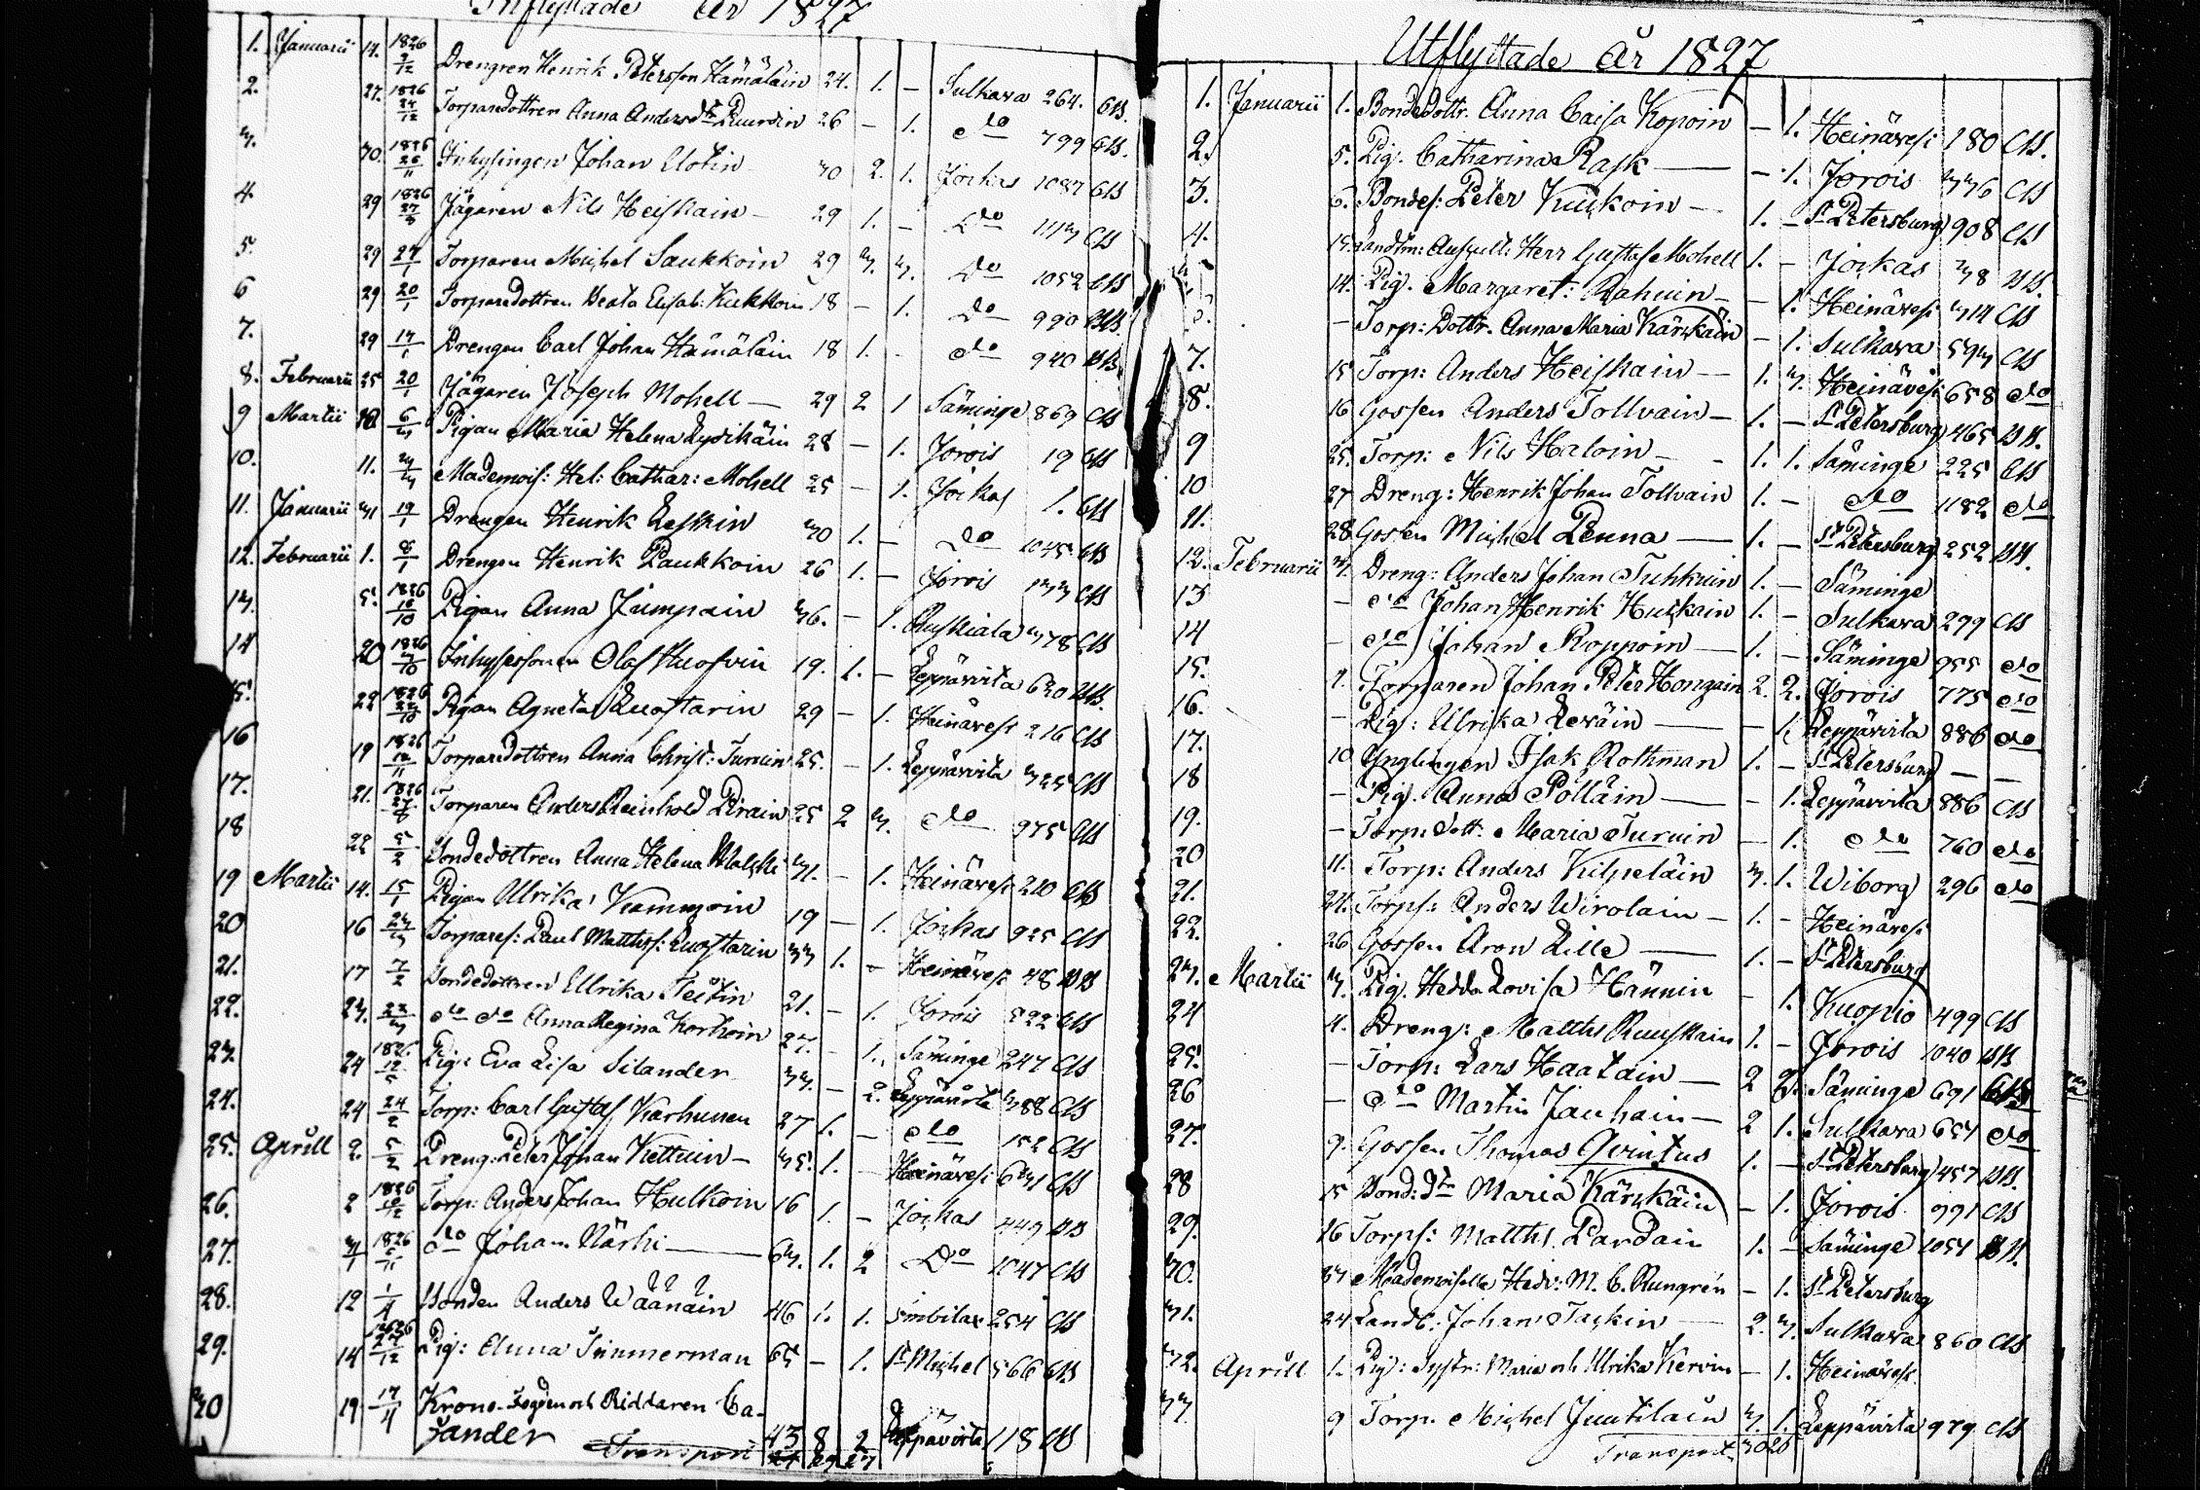 Inflyttade År 1827
1. Januarii 14. 1826 9/12 Drengren Henrik Petersson Hämäläin 24. 1. – Sulkava 264. CB.
2. 27. 1826 24/12 Torparedottren Anna Andersdtr 26 – 1. do 799 CB.
3. 30. 1826 26/11 Inhysingen Johan 30 2. 1. Jockas 1087 CB
4. 29 1826 27/8 Jägaren Nils Heiskain – 29 1. – Do 1113 CB
5. 29 27/1 Torparen Michel Saukkoin 29 3. 3. Do 1052 CB
6 29 20/1 Torparedottren Beata Elisab: Kukkoin 18 – 1. Do 990 BB
7. 29 14/1 Drengen Carl Johan Hämäläin 18 1. – do 940 BB.
8. Februarii 25 20/1 Jägaren Joseph Mohell — 29 2 1 Säminge 869 CB
9 Martii 6/3 Pigan Maria Helena Lyytikäin 28 – 1. Jorois 19 CB
10. 11. 3/3 Mademois: Hel: Cathar: Mohell 25 – 1. Jockas 1. CB
11. Januarii 31 19/1 Drengen Henrik Leskin 30 1. – Do 1045 CB
12. Februarii 1. 8/1 Drengen Henrik Paukkoin 26 1. – Jorois 133 CB
13. 5. 1826 18/10 Pigan Anna Jumpain 36. – 1. Ruskiala 378 CB
14 20 1826 3/10 Inhysessonen Olof 19. 1. – Leppävirta 630 BB.
15. 22 1826 22/10 Pigan Agneta Luostarin 29 – 1. Heinävesi 216 CB
16 19 1826 12/11 Torparedottren Anna Christ: Turuin 25. – 1. Leppävirta 325 CB
17. 21. 1826 27/8 Torparen Anders Reinhold Pirain 25 2 3. do 975 CB
18 22 5/2 Bondedottren Anna Helena 31. – 1. Heinävesi 210 CB
19 Martii 14. 15/1 Pigan Ulrika Kammoin 19 – 1. Jockas 925 CB
20 16 23/3 Torpares: Paul Matths: Luostarin 33 1. – Heinävesi 48 BB
21. 17 7/2 Bondedottren Ullrika Teitin 21. – 1. Jorois 522 CB
22. 23. 22/3 do do Anna Regina Korhoin 27. – 1. Säminge 247 CB
23. 24 1826 12/5 Pig: Eva Lisa Silander 33. – 2. Leppävirta 388 CB
24. 24 24/2 Torp: Carl Gustaf Karhunen 27 1. – do 152 CB
25. Aprill 2. 5/2 Dreng: Peter Johan Kettuin – 35. 1. – Heinävesi 631 CB
26. 2 1826 12 Torp: Anders Johan Hulkoin 16 1. – Jockas 449 BB
27. 3/1 1826 do Johan Närhi — 63. 1. 2 Do 1047 CB
28. 12 1/4 Bonden Anders Wäänäin 46 1. 1. 254 CB
29. 14 1826 27/12 Pig: Anna Timmerman 65 – 1. St Michel 566 CB
30 19 17/4 Krono-Fogden och Riddaren Ca-
jander 43 8 2 Leppävirta 118 BB
Transport 29 27
Utflyttade År 1827
1. Januarii 1. Bondedottr. Anna Caisa Kopoin – 1. Heinävesi 180 CB.
2. 5. Pig. Catharina Rask — – 1. Jorois 336 CB
3. 6. Bondes: Peter Kuikoin – 1. – St Petersburg 908 CB
4. 13. Landtm: Auscult: Herr Gustaf Mohell 1. – Jockas 38 BB.
14. Pig. Margaret: Rahuin – – 1. Heinävesi 314 CB
– Torp: Dottr. Anna Maria Kärkkäin – 1. Sulkava 593 CB
7. 15 Torp: Anders Heiskain – 1. 3. Heinävesi 658 do
8. 16 Gossen Anders Tollvain – 1. – St Petersburg 465 BB.
9 25. Torp: Nils Haloin – – 1. 1. Säminge 225 CB
10 27 Dreng: Henrik Johan Tollvain 1. – do 1182 do
11. 28. Gossen Michel Penna — 1. – St Petersburg 252 BB.
12. Februarii 3. Dreng: Anders Johan Tuhkuin 1. – Säminge
13 – do Johan Henrik Huskain 1. – Sulkava 299 CB
14 – do Johan Roppoin — 1. – Säminge 955 do
15. 7. Torparen Johan Peter Hongain 2. 2. Jorois 775 do
16. – Pig: Ulrika Leväin — – 1. Leppävirta 886 do
17. 10 Ynglingen Isak Rothman 1. – St Petersburg – –
18 – Pig. Anna Pölläin — – 1. Leppävirta 886 CB
19. – Torp: Dott. Maria Turuin – 1. do 760 do
20 11. Torp: Anders Kilpeläin 3. 1. Wiborg 296 do
21. 21. Torps: Anders Wirolain – 1. – Heinävesi
22. 26 Gossen Aron Lille — 1. – St Petersburg
23. Martii 3. Pig. Hedda Lovisa Hännin – 1. Kuopio 499 CB
24 4. Dreng: Matths Ruuskain 1. – Jorois 1040 BB
25. – Torp: Lars Haatain — 2 2. Säminge 691 CB
26 – do Martin Jauhain – 2 1. Sulkava 657 do
27. 9. Gossen Thomas Qvintus 1. – St Petersburg 457 BB.
28 15 Bond: dtr Maria Kärkkäin – 1. Jorois 991 CB
29. 16 Torps: Matths Pardain 1. – Säminge 1051 BB.
30. 23 Mademoiselle Hedv: M. C. Rungren – 1. St Petersburg
31. 24 Landb: Johan Taskin — 2. 3. Sulkava 860 CB
32. Aprill 1. Pig: Systr: Maria och Ulrika Kervin – 1. Heinävesi.
33. 9 Torp. Michel Juutilain 3. 1. Leppävirta 979 CB.
Transport 30 26